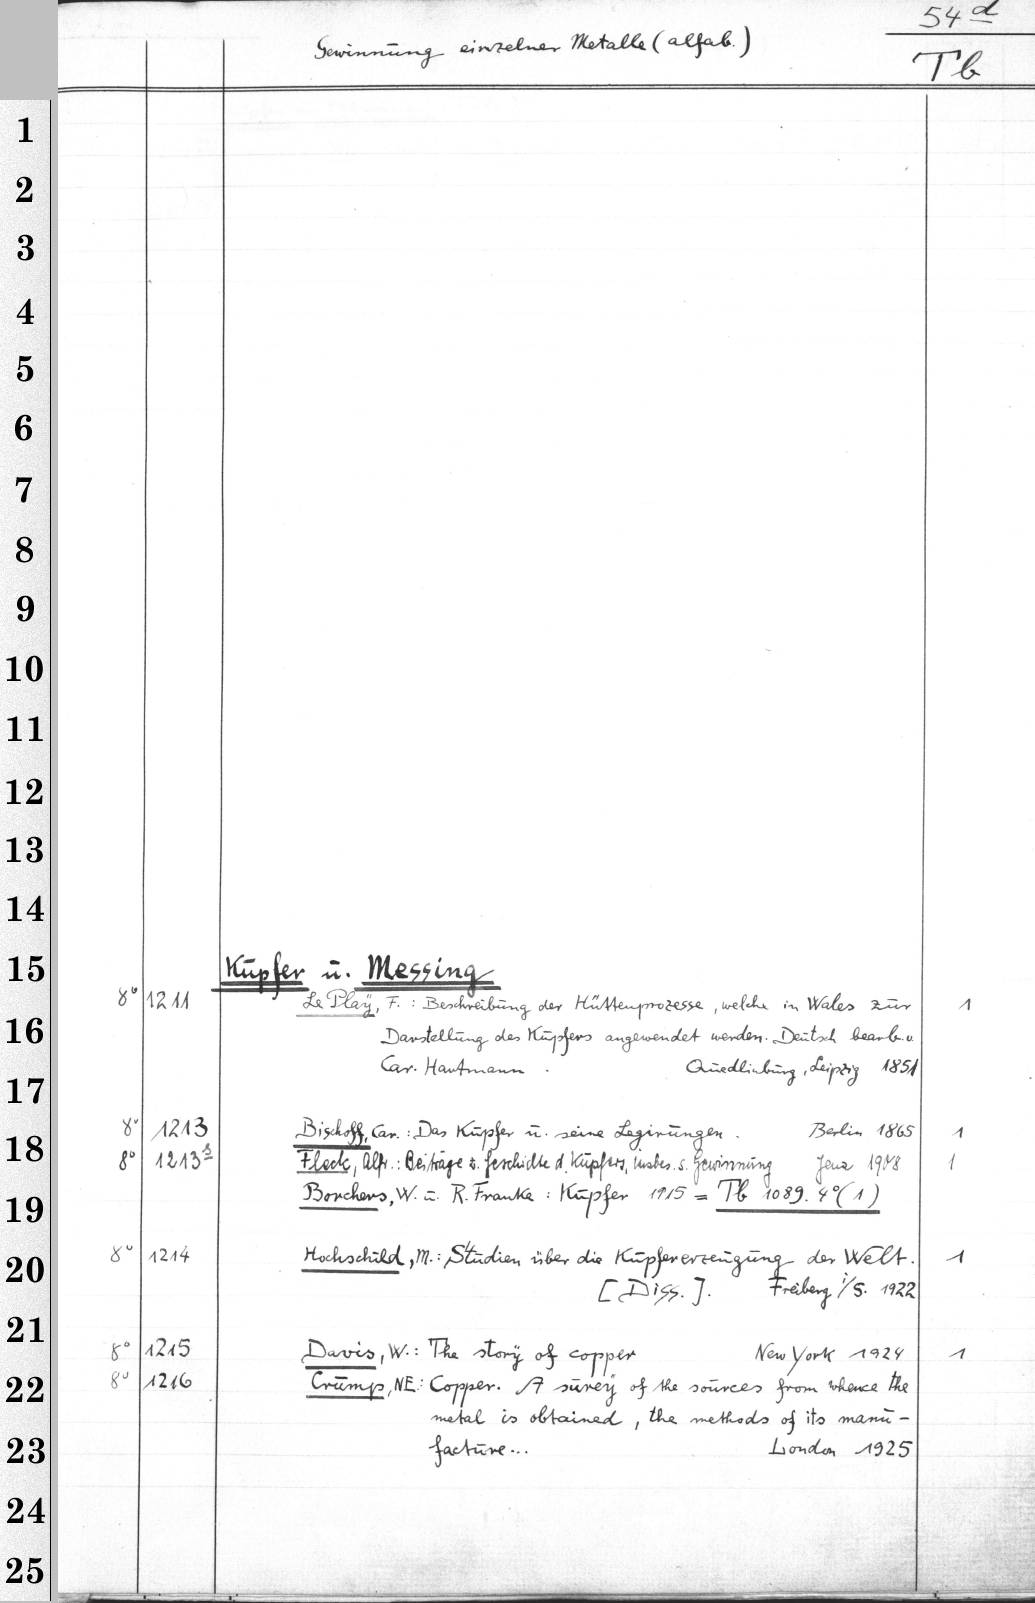 54 d
Gewinnung einzelner Metalle (alfab.)
Tb
1
2
3
4
5
6
7
8
9
10
11
12
13
14
15
Kupfer u. Messing
8° 1211 Le Play, F. : Beschreibung der Hüttenprozesse, welche in Wales zur 1
16
Darstellung des Kupfers angewendet werden. Deutsch bearb. v.
Car. Hartmann . Quedlinburg, Leipzig 1851
17
8° 1213 Bischoff, Car. : Das Kupfer u. seine Legirungen . Berlin 1865 1
18
8° 1213 s Fleck, Alfr. : Beiträge z. Geschichte d. Kupfers, insbes. s. Gewinnung Jena 1908 1
19
Borchers, W. u. R. Franke : Kupfer 1915 = Tb 1089. 4° (1)
8° 1214 Hochschild, M. : Studien über die Kupfererzeugung der Welt. 1
20
[Diss.]. Freiberg i/S. 1922
21
8° 1215 Davis, W. : The story of copper New York 1924 1
8° 1216 Crump, NE. : Copper. A surey of the sources from whence the
22
metal is obtained, the methods of its manu-
23
facture... London 1925
24
25